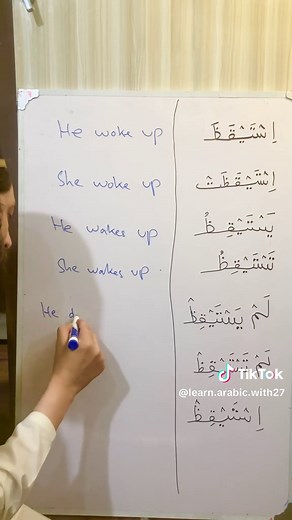 He woke up اِسْتَيْقَظَ
She woke up اِسْتَيْقَظَتْ
He wakes up يَسْتَيْقِظُ
She wakes up . تَسْتَيْقِظُ
He d لَمْ يَسْتَيْقِظْ
لَمْ تَسْتَيْقِظْ
TikTok
@learn.arabic.with27
اِسْتَيْقِظْ